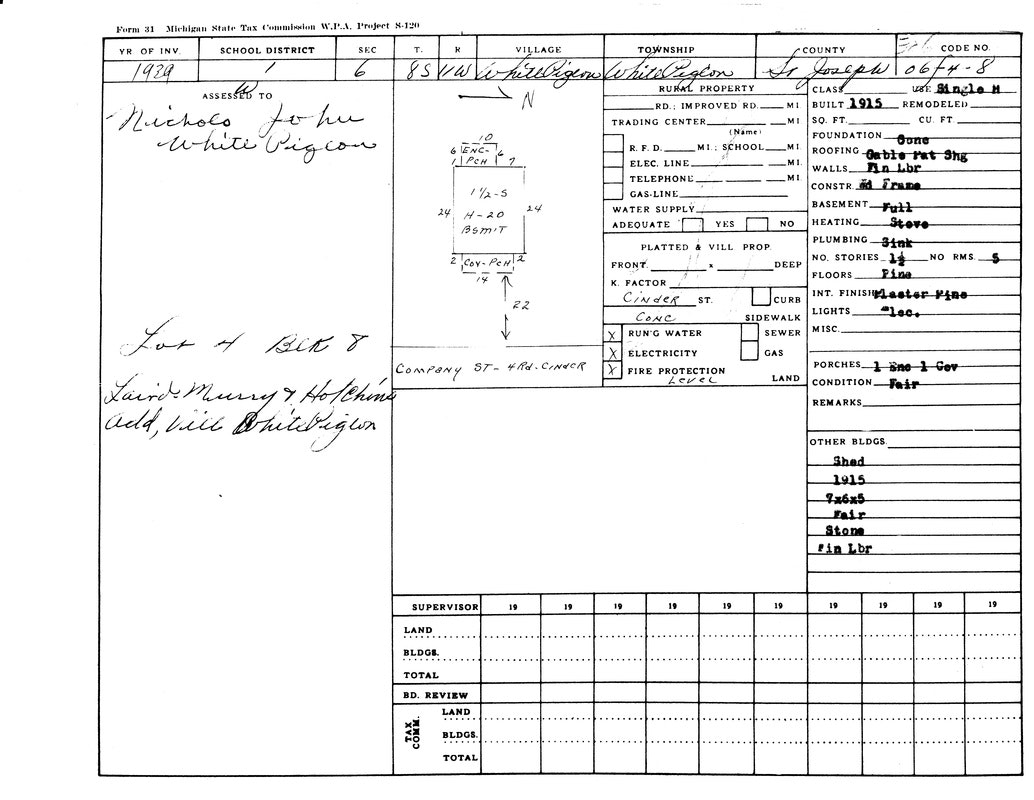 Form 31 Michigan State Tax Commission W.P.A. Project S-120
YR. OF INV. SCHOOL DISTRICT SEC T. R VILLAGE TOWNSHIP COUNTY CODE NO.
1939 1 6 8S 11W White Pigeon White Pigeon St Joseph 06F4-8
ASSESSED TO
Nichols John
White Pigeon
Lot 4 Blk 8
Laird Murry & Hotchins
Add, Vill White Pigeon
N
10
6 ENC- 6
1 PCH 7
1 1/2-S
24 H-20 24
BSMIT
2 COV-PCH 2
14
22
COMPANY ST- 4RD-CINDER
RURAL PROPERTY
RD.; IMPROVED RD. MI
TRADING CENTER MI
(Name)
R. F. D. MI; SCHOOL MI.
ELEC. LINE MI.
TELEPHONE MI.
GAS-LINE
WATER SUPPLY
ADEQUATE YES NO
PLATTED & VILL PROP.
FRONT. x DEEP
K. FACTOR
CINDER ST. CURB
CONC SIDEWALK
X RUN'G WATER SEWER
X ELECTRICITY GAS
X FIRE PROTECTION
LEVEL LAND
CLASS W USE Single H
BUILT 1915 REMODELED
SQ. FT. CU. FT
FOUNDATION Conc
ROOFING Gable Pat Shg
WALLS Fin Lbr
CONSTR. Wd Frame
BASEMENT Full
HEATING Stove
PLUMBING Sink
NO. STORIES 1½ NO RMS. 5
FLOORS Pine
INT. FINISH Plaster Pine
LIGHTS Elec.
MISC.
PORCHES 1 Enc 1 Cov
CONDITION Fair
REMARKS
OTHER BLDGS.
Shed
1915
7x6x5
Fair
Stone
Fin Lbr
SUPERVISOR 19 19 19 19 19 19 19 19 19 19
LAND
BLDGS.
TOTAL
BD. REVIEW
TAX COMM.
LAND
BLDGS.
TOTAL